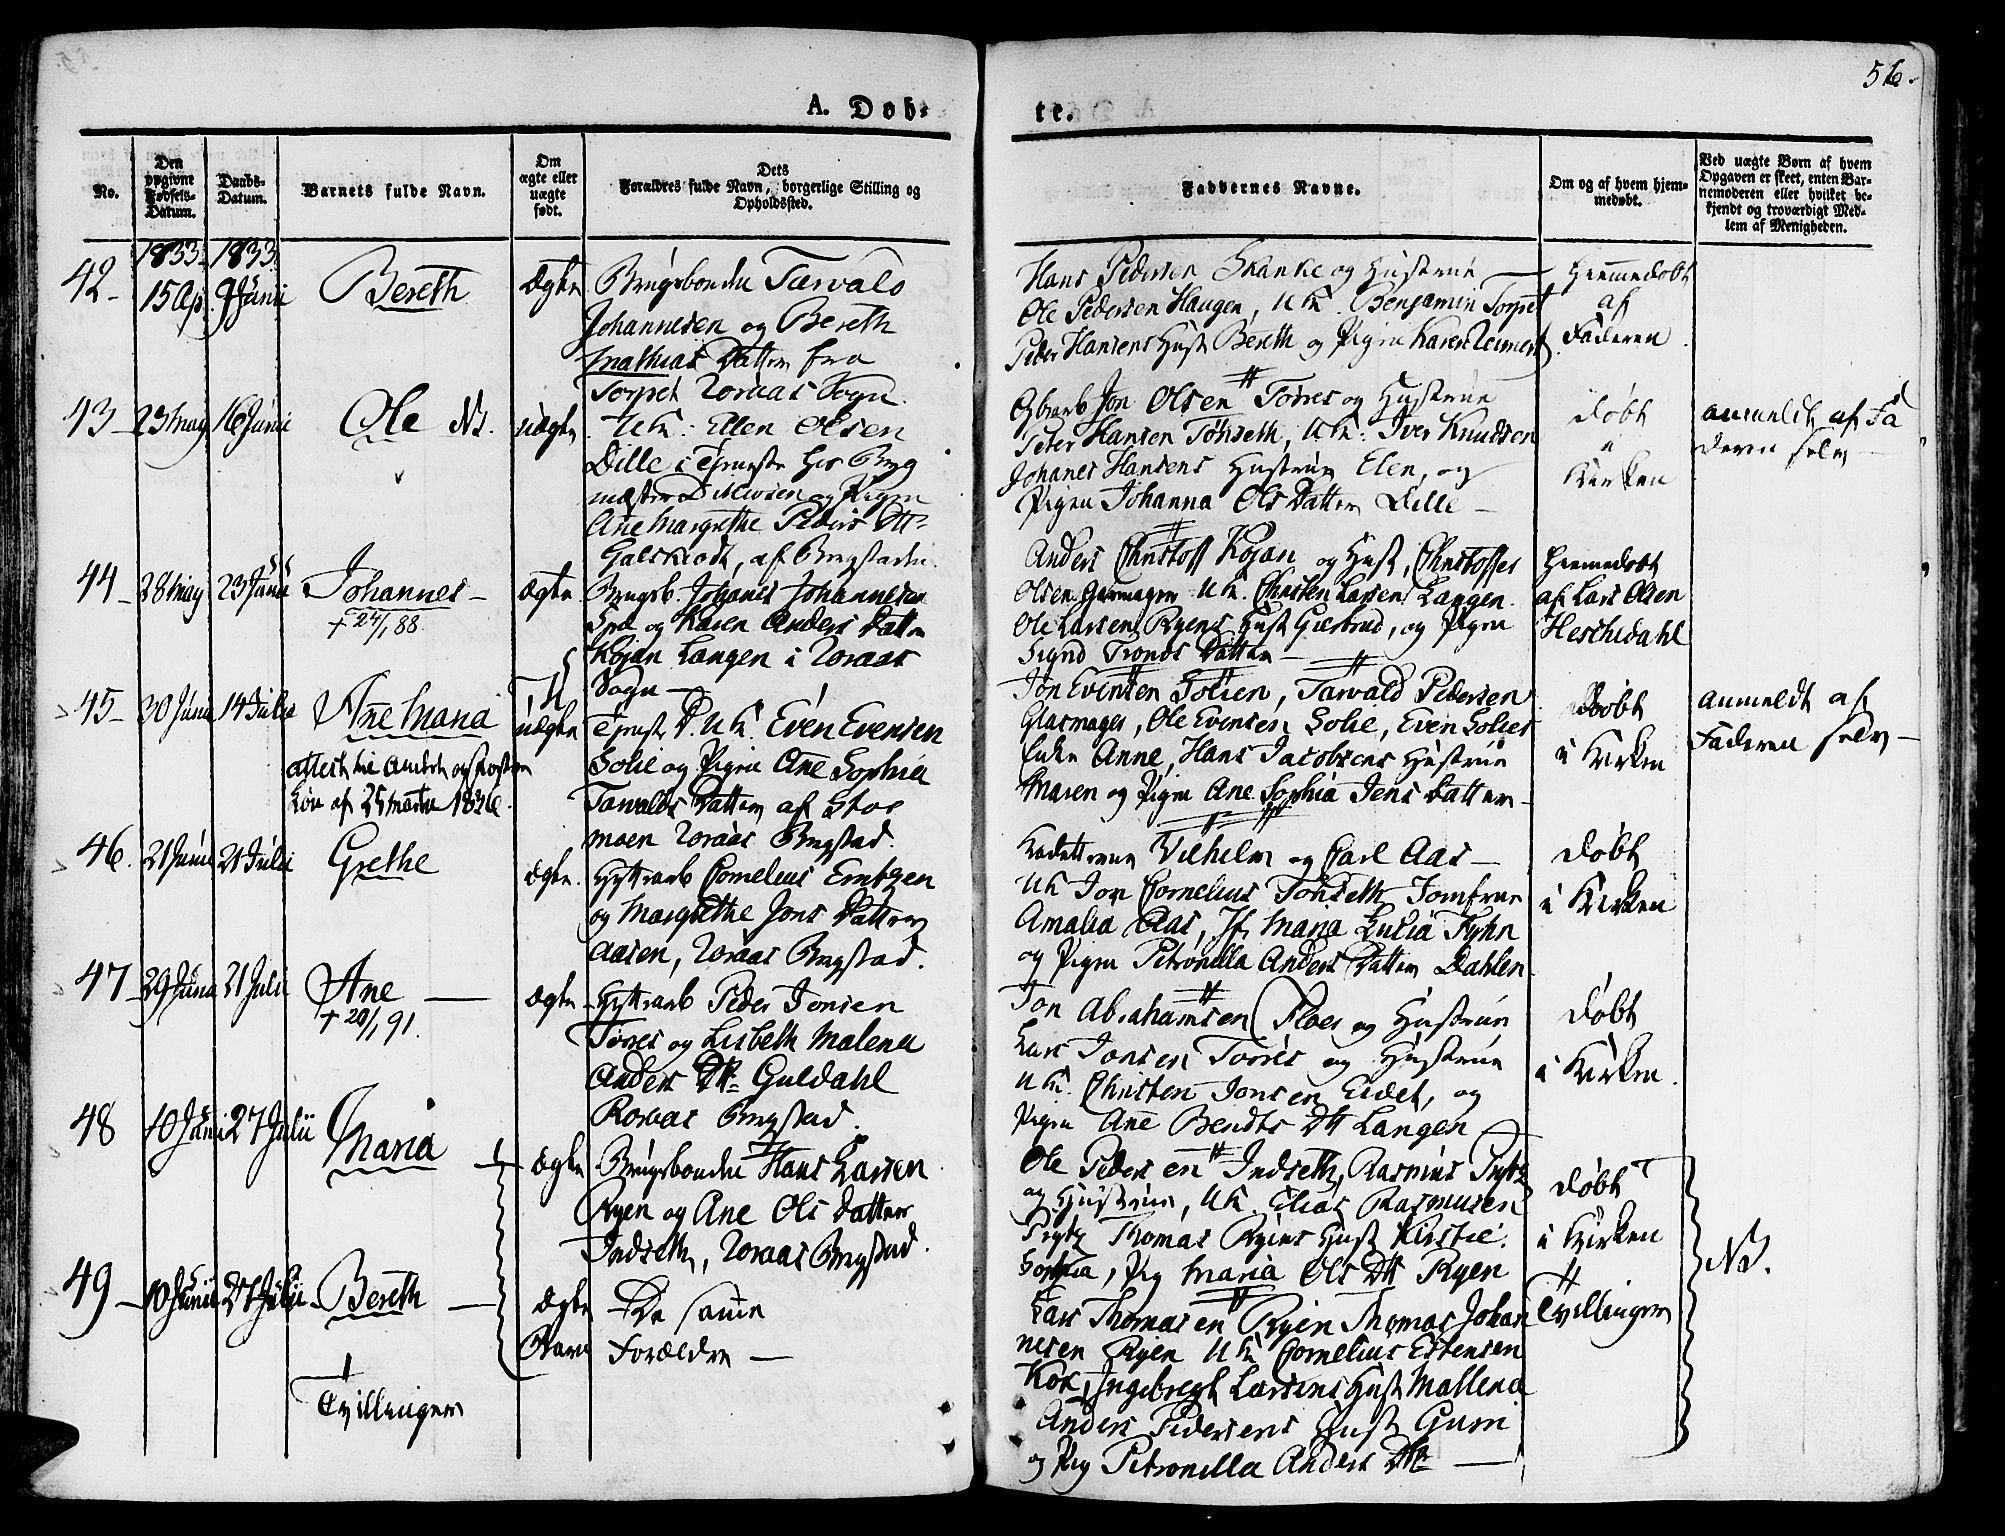 56.
A. Døb-
te.
No.
Den opgivne Fødsels-Datum.
Daabs-Datum.
Barnets fulde Navn.
Om ægte eller uægte født.
Dets Forældres fulde Navn, borgerlige Stilling og Opholdssted.
Faddernes Navne.
Om og af hvem hjem-medøbt.
Ved uægte Børn af hvem Opgaven er skeet, enten Bar-nemoderen eller hvilket be-kjendt og troværdigt Med-lem af Menigheden.
1833. 1833.
42- 15 Ap. 9 Junii Bereth ægte Brugsbonde Tarvald
Johannesen og Bereth
Mathias Datter fra
Torpet Röraas Sogn.
Hans Pedersen Skanke og Hustrue
Ole Pedersen Haugen, UK. Benjamin Torpet
Peder Hansens Hust Bereth og Pigen Karen
Hiemmedøbt
af
Faderen
43- 23 May 16 Junii Ole uægte UK: Ellen Olsen
Dille i Tjeneste hos Byg
mester og Pigen
Ane Margrethe Peders Dtr
af Bergstaden.
Jon Olsen Torres og Hustrue
Peter Hansen Tønseth, UK: Iver Knudsen
Johanes Hansens Hustrue Elen, og
Pigen Johanna Ols Datter Dille -
Døbt
i
Kirken
anmeldt af Fa
deren selv -
44- 28 May 23 Junii Johannes - ægte Brugsb. Johanes Johannesen
+ 24/1 88.
og Karen Anders Datter
Kojan Langen i Röraas
Sogn -
Anders Christoff Kojan og Hust, Christoffer
Olsen Garmager UK. Christen Larsen Langen
Ole Larsen Ryens Hust og Pigen
Sigrid Tronds Datter -
Hiemmedøbt
af Lars Olsen
45- 30 Junii 14 Julii Ane Maria uægte Tjenest D. UK. Even Evensen
af 25 Martii 1836.
Solie og Pigen Ane Sophia
Tarvalds Datter af Stor
moen Röraas Bergstad.
Jon Evensen Solien, Tarvald Pedersen
Glasmager, Ole Evensen Solie, Even Solies
Enke Anne, Hans Jacobsens Hustrue
Maren og Pigen Ane Sophia Jens Datter -
Døbt
i Kirken
anmeldt af
Faderen selv -
46. 21 Junii 21 Julii Grethe ægte. Hyttearb Cornelius Erntzen
og Margrethe Jons Datter
Aasen, Röraas Bergstad.
Kadetterne Vilhelm og Carl Aas -
UK Jon Cornelius Tönseth Jomfrue
Amalia Aas, Jf. Maria Lucia Fyhn
og Pigen Petronella Anders Datter Dahlen
Døbt
i Kirken
47- 29 Junii 21 Julii Ane - ægte Hyttearb Peder Jonsen
+ 20/1 91.
Torres og Lisbeth Malena
Anders Dtr Guldahl
Roraas Bergstad.
Jon Abrahamsen Floer og Hustrue
Lars Jonsen Torres og Hustrue
UK. Christen Jonsen Eidet, og
Pigen Ane Bendts Dtr Langen
Døbt
i Kirken.
48 10 Juni 27 Julii Maria ægte Brugsbonde Hans Larsen
Ryen og Ane Ols Datter
Indseth, Roraas Bergstad.
Ole Pedersen Indseth, Rasmus
og Hustrue, UK. Elias Rasmusen
Thomas Ryens Hust Kirstie.
Sophia, Pig Maria Ols Dtr Ryen
Døbt
i Kirken
Tvillinger
NB.
49- 10 Junii 27 Julii Bereth - ægte De samme
Barn Forældre -
Tvillinger
Lars Thomasen Ryen Thomas Johan
nesen Ryen UK Cornelius Estensen
Kox, Ingebregt Larsens Hust Mallena
Anders Pedersens Hust Guri
og Pig Petronella Anders Dtr -